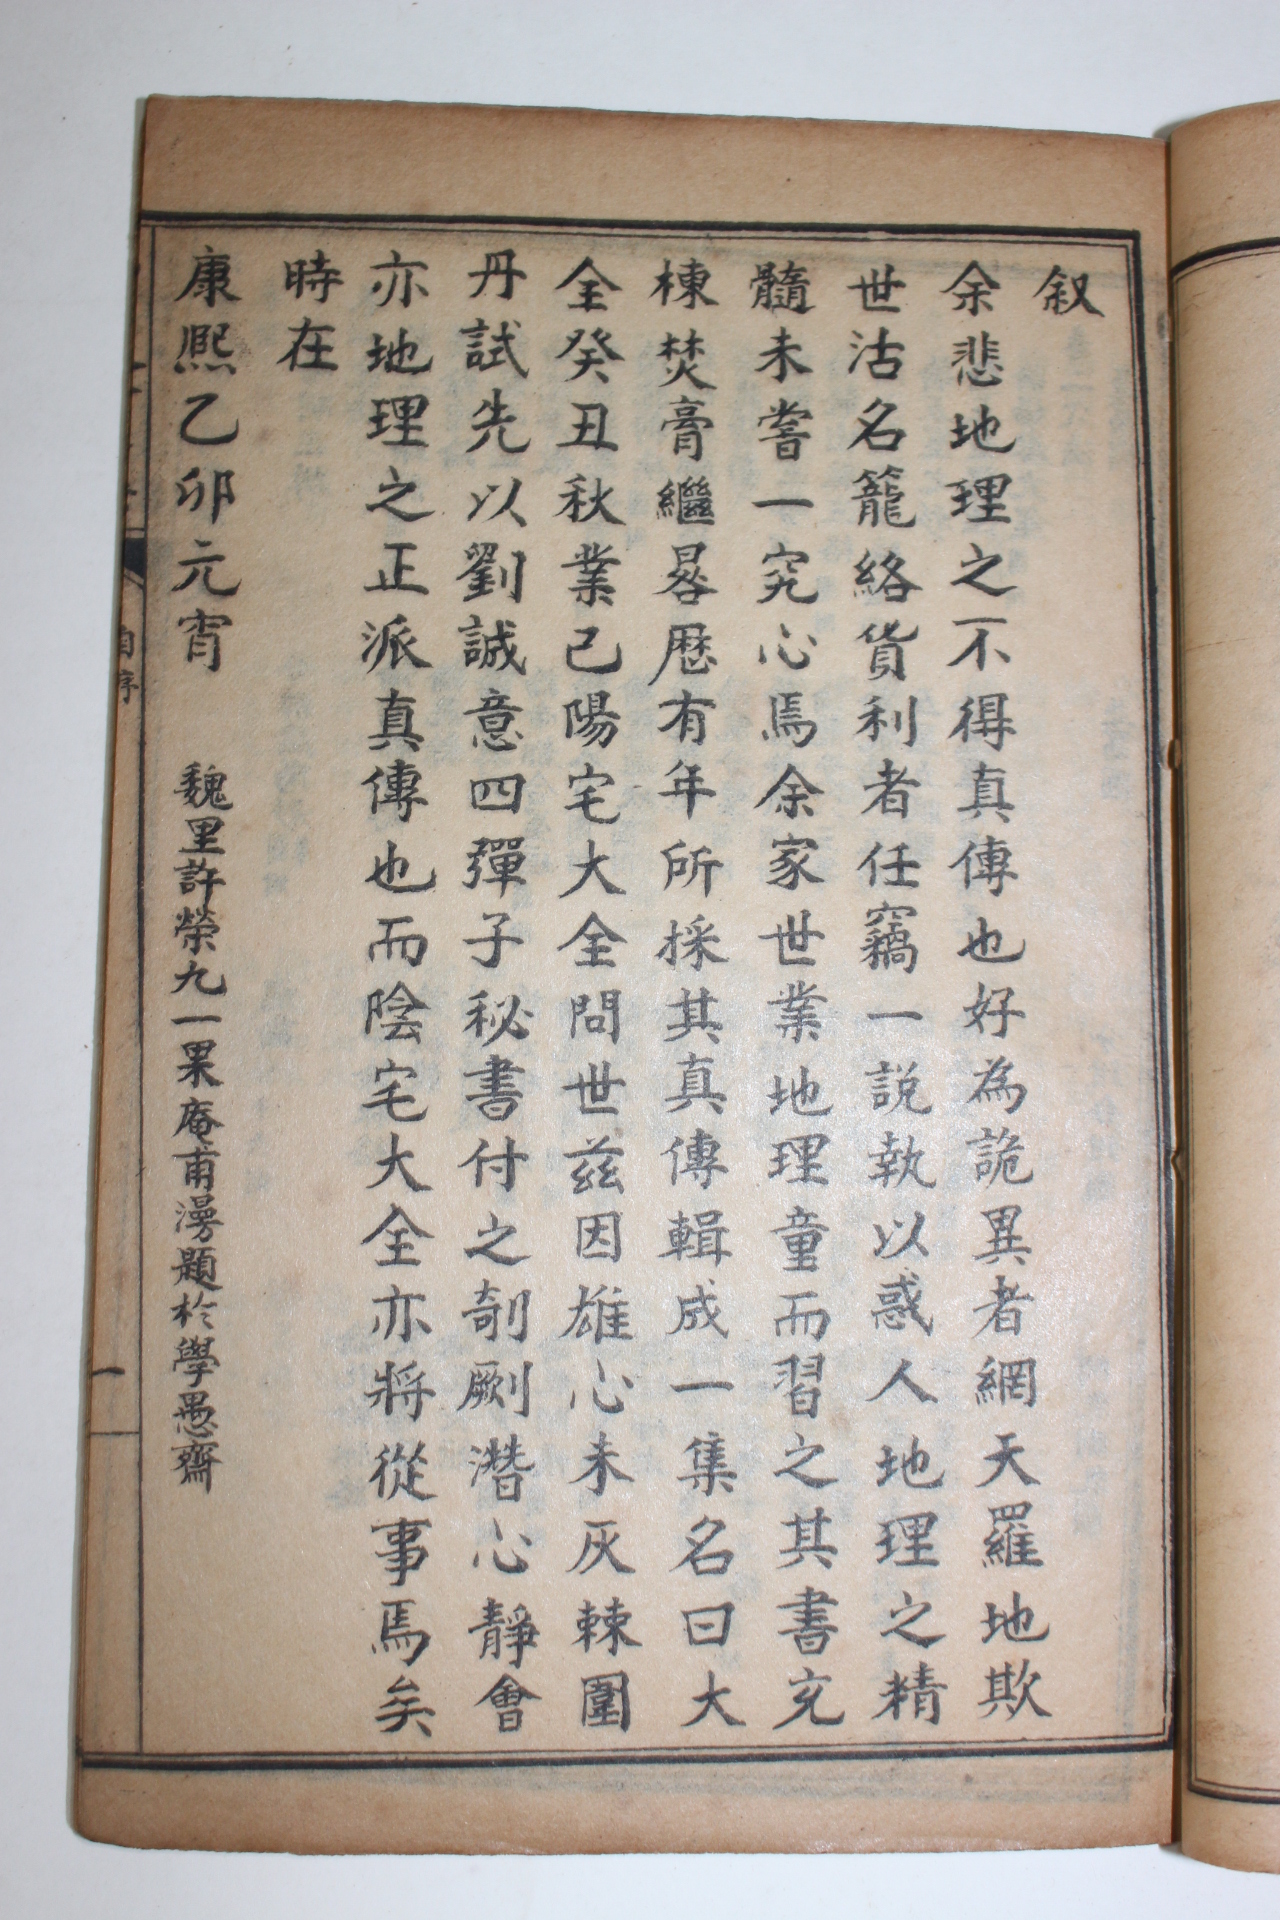 叙
余悲地理之不得真傳也好為詭異者網天羅地欺
世沽名籠絡貨利者任竊一說執以惑人地理之精
髓未嘗一究心焉余家世業地理童而習之其書充
棟焚膏繼晷歷有年所採其真傳輯成一集名曰大
全癸丑秋業已陽宅大全問世茲因雄心未灰棘圍
丹試先以劉誠意四彈子秘書付之剞劂潛心靜會
亦地理之正派真傳也而陰宅大全亦將從事焉矣
時在
康熙乙卯元宵 魏里許榮九一果庵甫漫題於學愚齋
自序
一